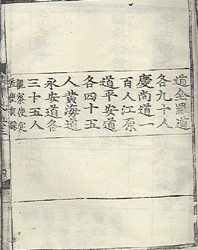 道全羅道
各九十人
慶尙道一
百人江原
道平安道
各四十五
人黃海道
永安道各
三十五人
觀察使定
差使員錄